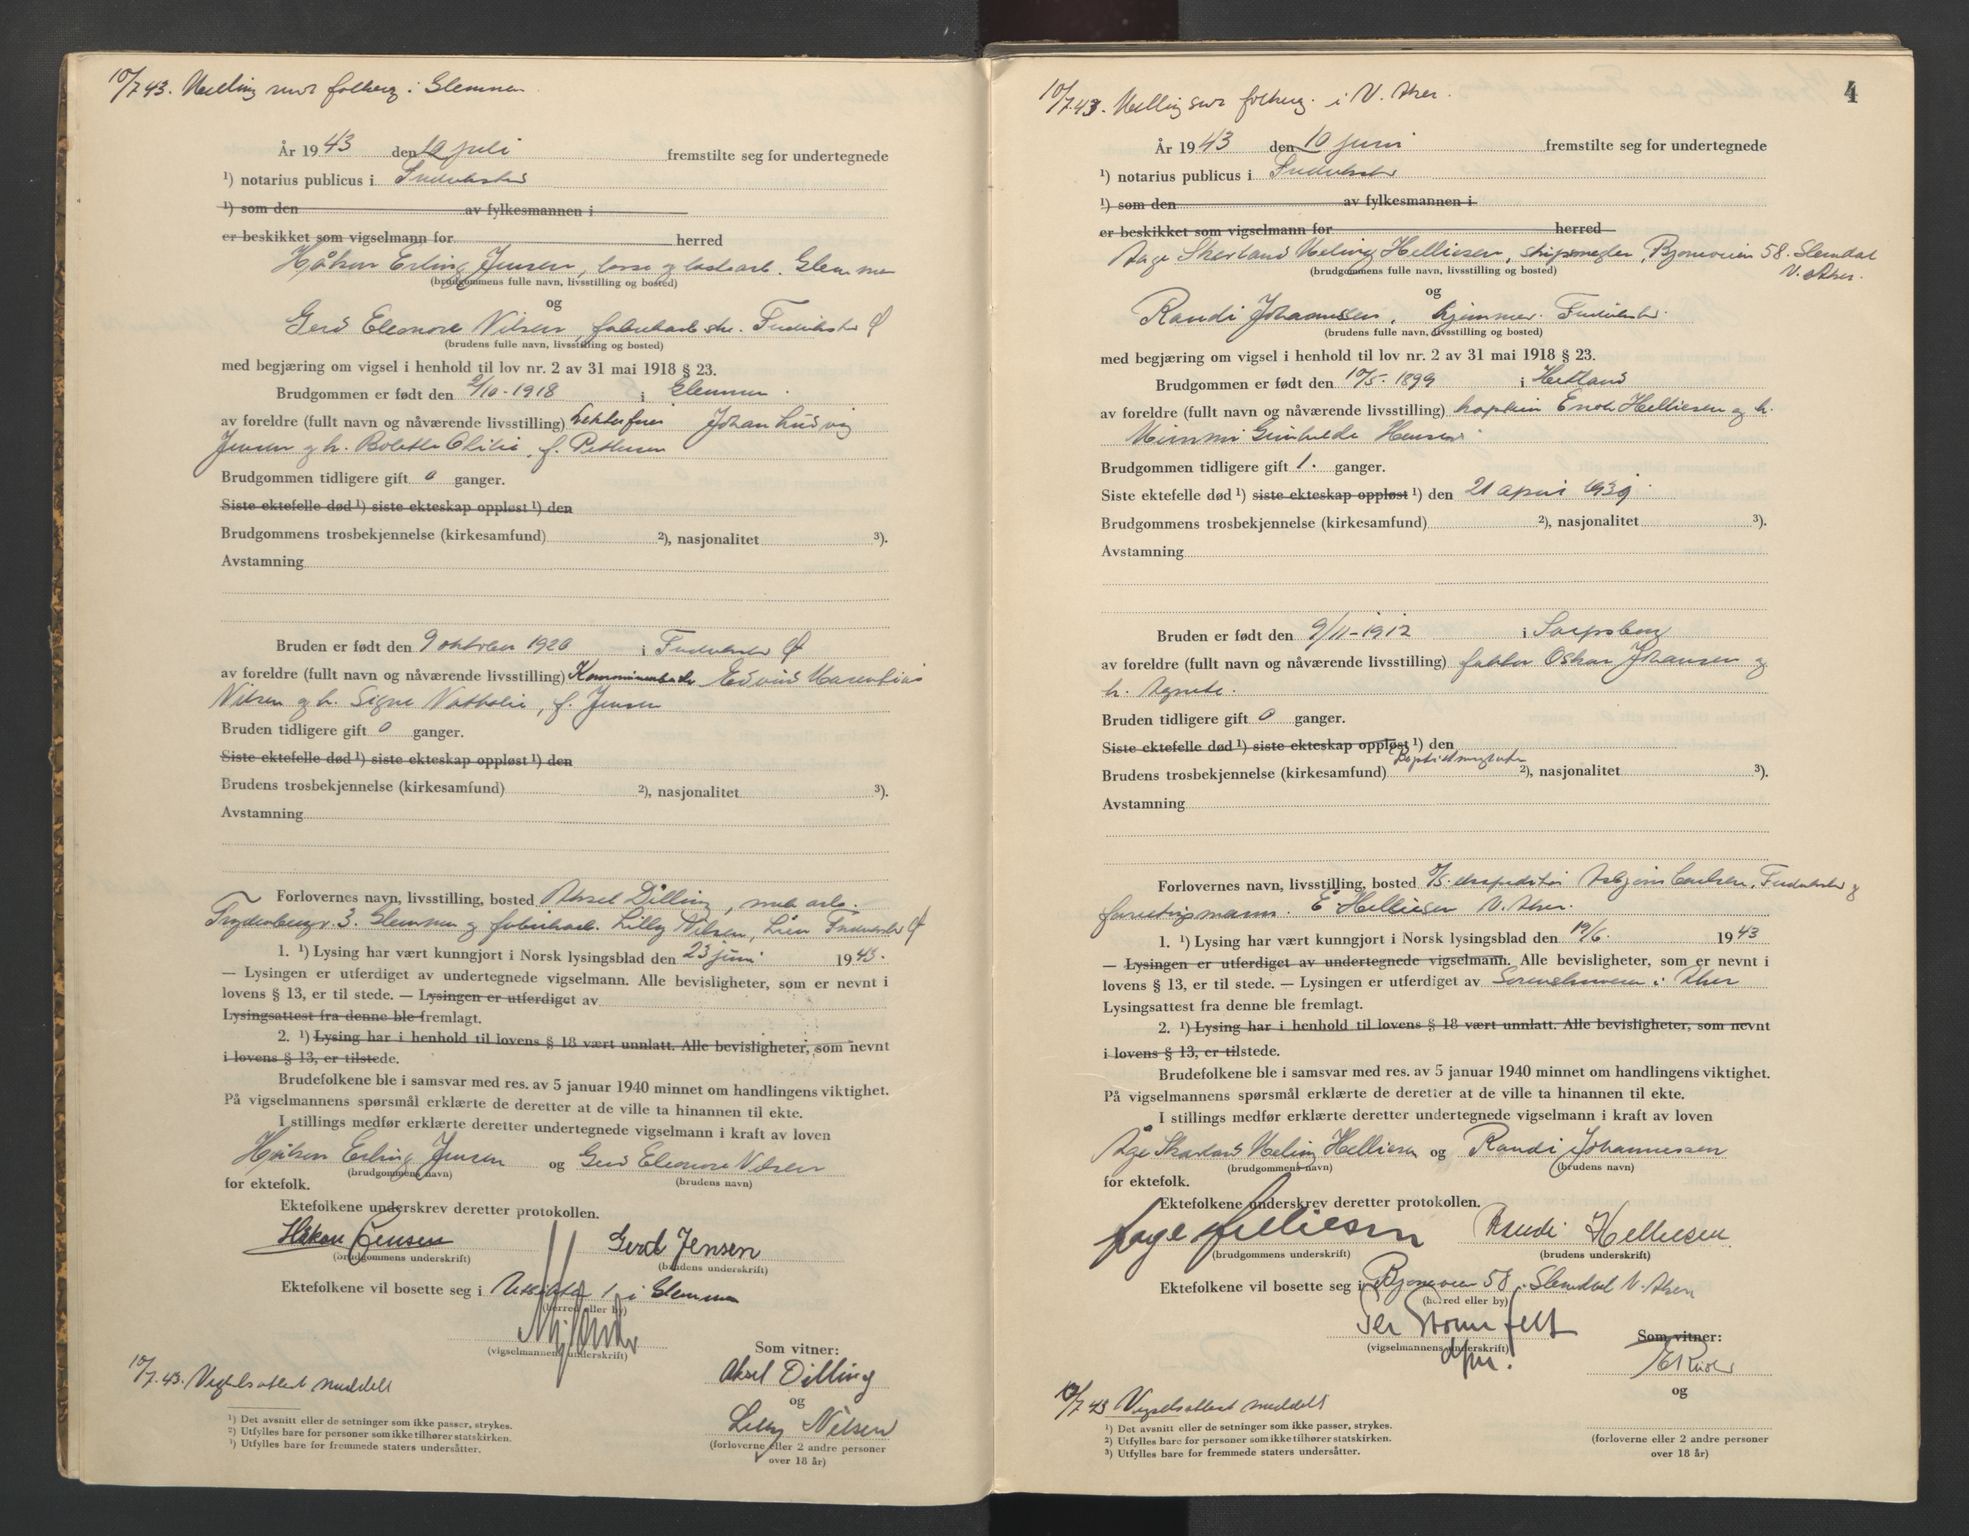 10/7.43. Melding sendt folkereg. i Glemmen.
År 1943 den 10 juli fremstilte seg for undertegnede
¹) notarius publicus i Fredrikstad
¹) som den av fylkesmannen i
er beskikket som vigselmann for herred
Håkon Erling Jensen, losse og lastearb. Glemmen
(brudgommens fulle navn, livsstilling og bosted)
og
Gerd Eleonore Nilsen, fabrikarb.ske. Fredrikstad Ø
(brudens fulle navn, livsstilling og bosted)
med begjæring om vigsel i henhold til lov nr. 2 av 31 mai 1918 § 23.
Brudgommen er født den 2/10-1918 i Glemmen.
av foreldre (fullt navn og nåværende livsstilling) Johan Ludvig
Jensen og h. Bolette Otilie, f. Pettersen
Brudgommen tidligere gift 0 ganger.
Siste ektefelle død ¹) siste ekteskap oppløst ¹) den
Brudgommens trosbekjennelse (kirkesamfund) ²), nasjonalitet ³).
Avstamning
Bruden er født den 9 oktober 1920 i Fredrikstad Ø
av foreldre (fullt navn og nåværende livsstilling) Edvind Marentius
Nilsen og h. Signe Nathalie, f. Jensen
Bruden tidligere gift 0 ganger.
Siste ektefelle død ¹) siste ekteskap oppløst ¹) den
Brudens trosbekjennelse (kirkesamfund) ²), nasjonalitet ³).
Avstamning
Forlovernes navn, livsstilling, bosted Aksel Dilling, arb.
3. Glemmen og fabrikarb. Lilly Nilsen, Lien Fredrikstad Ø
1. ¹) Lysing har vært kunngjort i Norsk lysingsblad den 23 juni 1943.
— Lysingen er utferdiget av undertegnede vigselmann. Alle bevisligheter, som er nevnt i
lovens § 13, er til stede. — Lysingen er utferdiget av
Lysingsattest fra denne ble fremlagt.
2. ¹) Lysing har i henhold til lovens § 18 vært unnlatt. Alle bevisligheter, som nevnt
i lovens § 13, er tilstede.
Brudefolkene ble i samsvar med res. av 5 januar 1940 minnet om handlingens viktighet.
På vigselmannens spørsmål erklærte de deretter at de ville ta hinannen til ekte.
I stillings medfør erklærte deretter undertegnede vigselmann i kraft av loven
Håkon Erling Jensen og Gerd Eleonore Nilsen
(brudgommens navn) (brudens navn)
for ektefolk.
Ektefolkene underskrev deretter protokollen.
Håkon Jensen Gerd Jensen
(brudgommens underskrift) (brudens underskrift)
Ektefolkene vil bosette seg i 1 i Glemmen
(herred eller by)
(vigselmannens underskrift)
Som vitner:
Aksel Dilling
og
Lilly Nilsen
(forloverne eller 2 andre personer
over 18 år)
10/7.43. Vigselsattest meddelt
¹) Det avsnitt eller de setninger som ikke passer, strykes.
²) Utfylles bare for personer som ikke tilhører statskirken.
³) Utfylles bare for fremmede staters undersåtter.
4
10/7.43. Melding sendt folkereg. i V. Aker.
År 1943 den 10 juni fremstilte seg for undertegnede
¹) notarius publicus i Fredrikstad
¹) som den av fylkesmannen i
er beskikket som vigselmann for herred
Aage Skarland Meling Helliesen, skipsmegler, Bjørnveien 58. Slemdal
V. Aker.
(brudgommens fulle navn, livsstilling og bosted)
og
Randi Johannessen, hjemmev. Fredrikstad.
(brudens fulle navn, livsstilling og bosted)
med begjæring om vigsel i henhold til lov nr. 2 av 31 mai 1918 § 23.
Brudgommen er født den 10/5-1899 i Hetland
av foreldre (fullt navn og nåværende livsstilling) kaptein Enok Helliesen og h.
Mimmi Gunhilde Hansen
Brudgommen tidligere gift 1. ganger.
Siste ektefelle død ¹) siste ekteskap oppløst ¹) den 21 april 1939
Brudgommens trosbekjennelse (kirkesamfund) ²), nasjonalitet ³).
Avstamning
Bruden er født den 9/11-1912 i Sarpsborg
av foreldre (fullt navn og nåværende livsstilling) faktor Oskar Johansen og
h. Agnete.
Bruden tidligere gift 0 ganger.
Siste ektefelle død ¹) siste ekteskap oppløst ¹) den
Brudens trosbekjennelse (kirkesamfund) ²), nasjonalitet ³).
Avstamning
Forlovernes navn, livsstilling, bosted ekspeditør Asbjørn Carlsen, Fredrikstad og
forretningsmann. E Helliesen V. Aker.
1. ¹) Lysing har vært kunngjort i Norsk lysingsblad den 19/6. 1943
— Lysingen er utferdiget av undertegnede vigselmann. Alle bevisligheter, som er nevnt i
lovens § 13, er til stede. — Lysingen er utferdiget av Sorenskriveren i Aker
Lysingsattest fra denne ble fremlagt.
2. ¹) Lysing har i henhold til lovens § 18 vært unnlatt. Alle bevisligheter, som nevnt
i lovens § 13, er tilstede.
Brudefolkene ble i samsvar med res. av 5 januar 1940 minnet om handlingens viktighet.
På vigselmannens spørsmål erklærte de deretter at de ville ta hinannen til ekte.
I stillings medfør erklærte deretter undertegnede vigselmann i kraft av loven
Åge Skarland Meling Helliesen og Randi Johannessen
(brudgommens navn) (brudens navn)
for ektefolk.
Ektefolkene underskrev deretter protokollen.
Aage Helliesen Randi Helliesen
(brudgommens underskrift) (brudens underskrift)
Ektefolkene vil bosette seg i Bjørnveien 58. Slemdal V. Aker
(herred eller by)
(vigselmannens underskrift)
dfm.
Som vitner:
og
(forloverne eller 2 andre personer
over 18 år)
10/7 43 Vigselsattest meddelt
¹) Det avsnitt eller de setninger som ikke passer, strykes.
²) Utfylles bare for personer som ikke tilhører statskirken.
³) Utfylles bare for fremmede staters undersåtter.